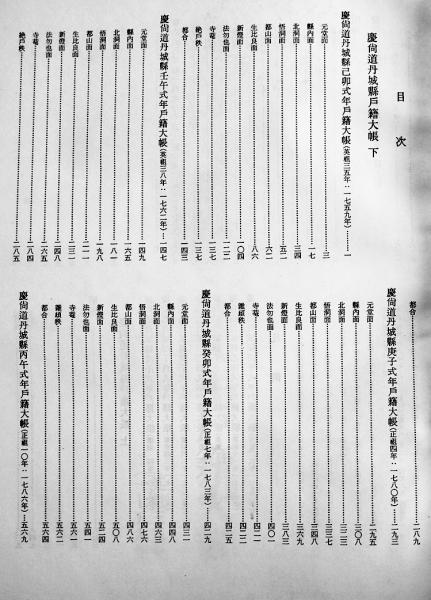 目次
慶尙道丹城縣戶籍大帳 下
慶尙道丹城縣己卯式年戶籍大帳(英祖三五年:一七五九年)……一
元堂面……三
縣內面……一七
北洞面……三四
悟洞面……五一
都山面……六二
生比良面……八六
新燈面……一〇四
法勿也面……一二二
寺菴……一三七
絶戶秩……一三七
都合……一四三
慶尙道丹城縣壬午式年戶籍大帳(英祖三八年:一七六二年)……一四七
元堂面……一四九
縣內面……一六五
北洞面……一八一
悟洞面……一九八
都山面……二一一
生比良面……二三二
新燈面……二四八
法勿也面……二六五
寺菴……二八四
絶戶秩……二八五
都合……二八九
慶尙道丹城縣庚子式年戶籍大帳(正祖四年:一七八〇年)……二九三
元堂面……二九五
縣內面……三〇八
北洞面……三二三
悟洞面……三三七
都山面……三四八
生比良面……三六九
新燈面……三八三
法勿也面……四〇一
寺菴……四二一
雜頉秩……四二二
都合……四二五
慶尙道丹城縣癸卯式年戶籍大帳(正祖七年:一七八三年)……四二九
元堂面……四三一
縣內面……四四八
北洞面……四六三
悟洞面……四七六
都山面……四八六
生比良面……五〇八
新燈面……五二四
法勿也面……五四一
寺菴……五六一
雜頉秩……五六二
都合……五六四
慶尙道丹城縣丙午式年戶籍大帳(正祖一〇年:一七八六年)……五六九